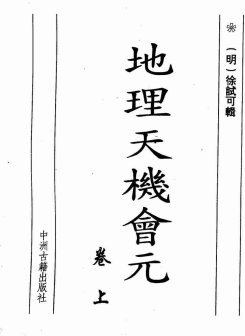 （明）徐試可輯
地理天機會元
卷上
中洲古籍出版社